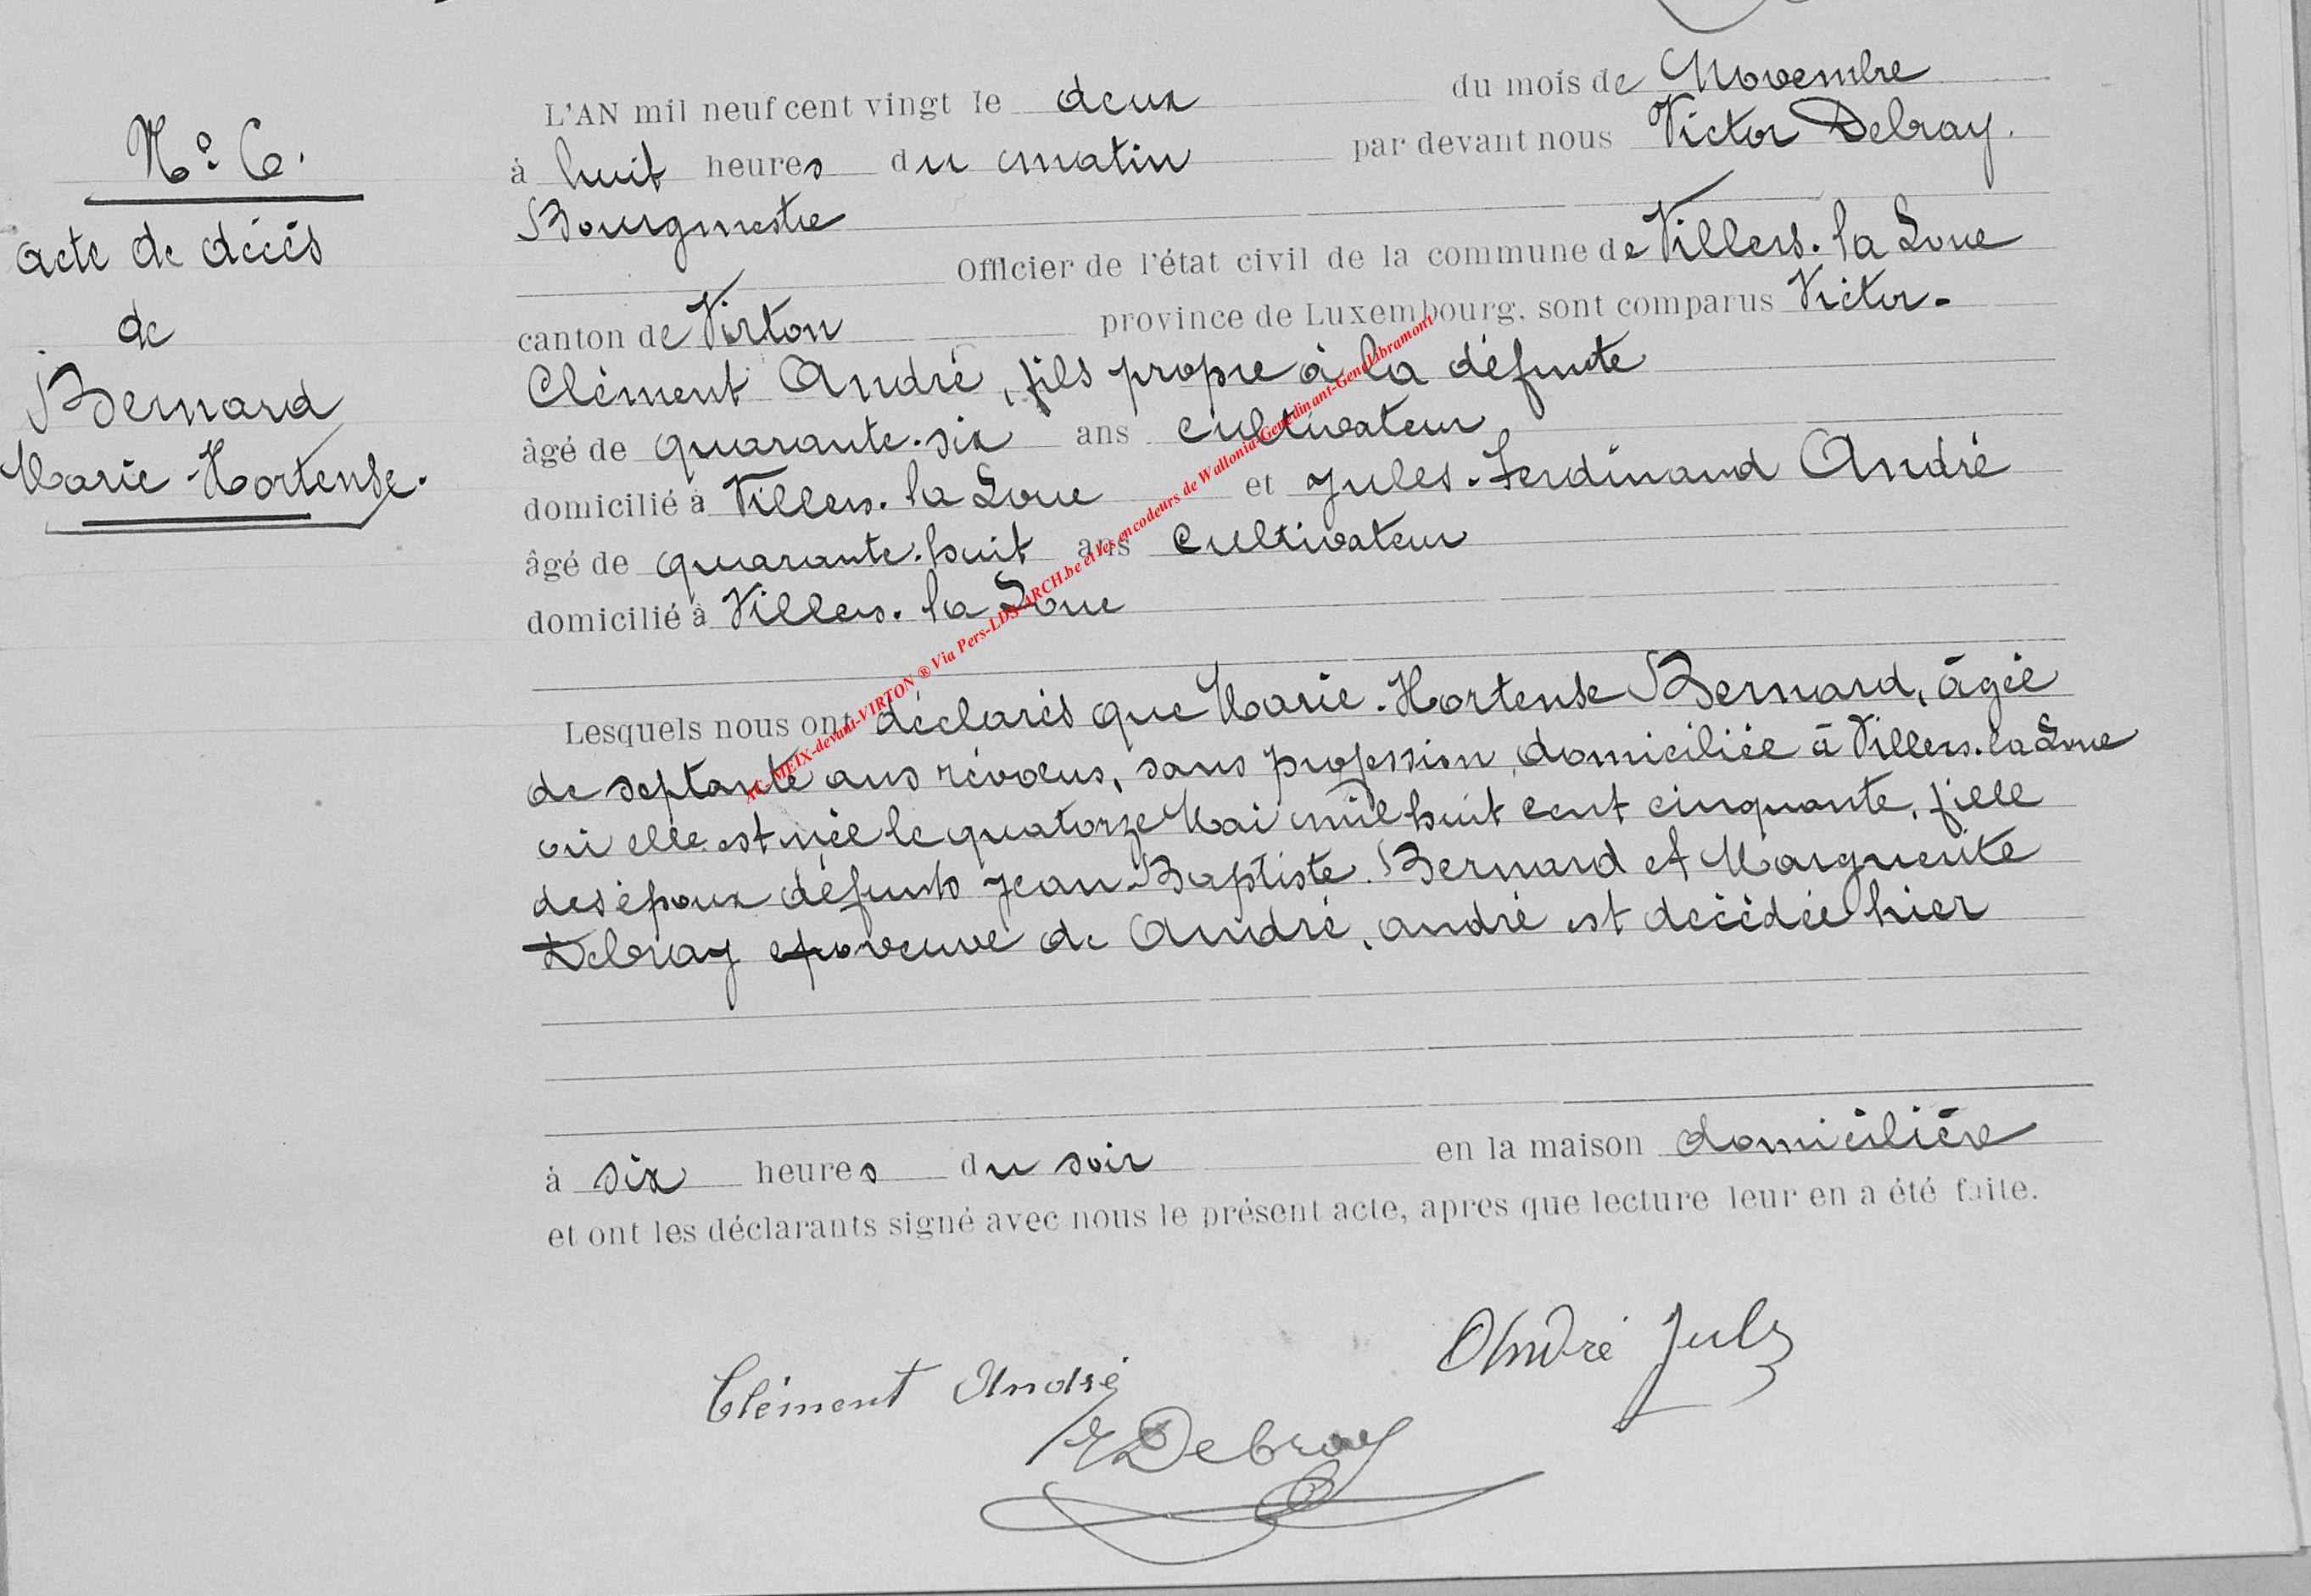 N° 6.
acte de décès
de
Bernard
Marie-Hortense.
L'AN mil neuf cent vingt le deux du mois de Novembre
à huit heures du matin par devant nous Victor Debray.
Bourgmestre
Officier de l'état civil de la commune de Villers-la Loue
canton de Virton province de Luxembourg, sont comparus Victor-
Clément André, fils propre à la défunte
âgé de quarante-six ans cultivateur
domicilié à Villers-la Loue et Jules-Ferdinand André
âgé de quarante-huit ans cultivateur
domicilié à Villers-la Loue
Lesquels nous ont déclarés que Marie-Hortense Bernard, âgée
de septante ans révolus, sans profession, domiciliée à Villers-la Loue
où elle est née le quatorze Mai mil huit cent cinquante, fille
des époux défunts Jean-Baptiste Bernard et Marguerite
Debray veuve de André, andré est décédée hier
à six heures du soir en la maison domicilière
et ont les déclarants signé avec nous le présent acte, apres que lecture leur en a été faite.
Clément André
André Jules
V Debray
AC-MEIX-devant-VIRTON ® Via Pers-LDS-ARCH.be et les encodeurs de Wallonia-Genedinant-GeneLibramont